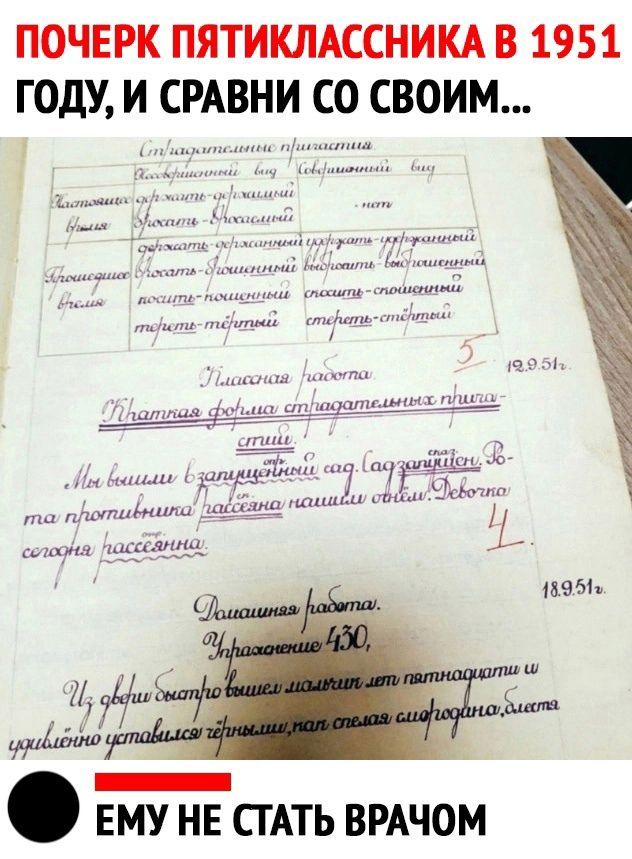 ПОЧЕРК ПЯТИКЛАССНИКА В 1951
ГОДУ, И СРАВНИ СО СВОИМ...
Страдательные причастия.
Несовершенный вид Совершенный вид
Настоящее время
держать-держимый
бросать-бросаемый
- нет
Прошедшее время
держать-держанный удержать-удержанный
бросать-брошенный выбросить-выброшенный
носить-ношенный скосить-скошенный
тереть-тёртый стереть-стёртый
5
Классная работа. 12.9.51г.
Краткая форма страдательных прича-
стий.
опр. сказ.
Мы вышли в запущенный сад. Сад запущен. Ро-
ск.
та противника рассеяна нашим огнём. Девочка
опр.
сегодня рассеянна.
4
Домашняя работа. 18.9.51г.
Упражнение 430,
Из двери быстро вышел мальчик лет пятнадцати и
удивлённо уставился чёрными, как спелая смородина, блестя
ЕМУ НЕ СТАТЬ ВРАЧОМ